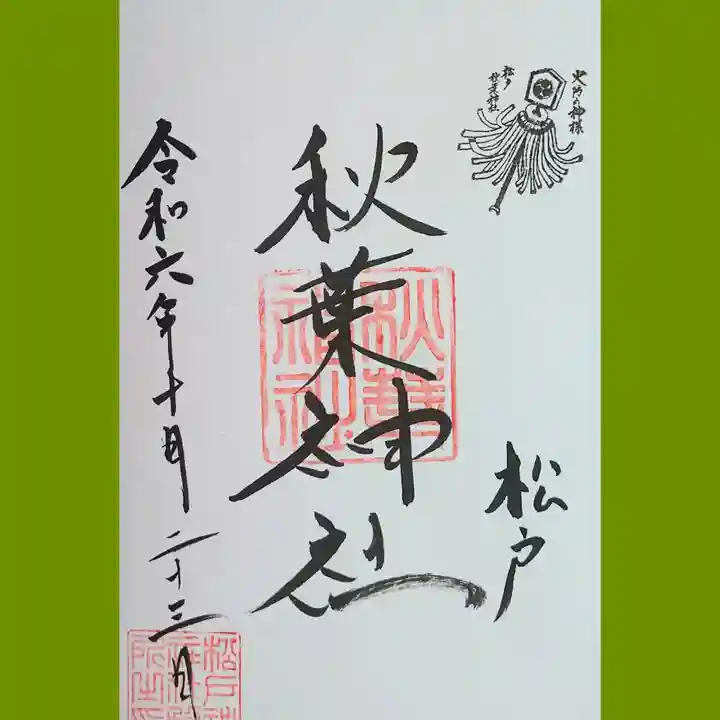 火防の神様
松戸
秋葉神社
松戸
秋葉神社
秋葉
神社
令和六年十月二十三日
松戸神